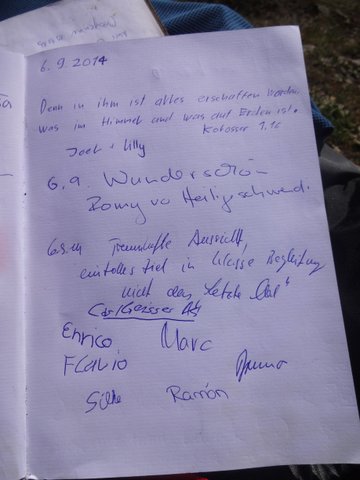 6.9.2014
Denn in ihm ist alles erschaffen worden,
was im Himmel und was auf Erden ist.
Kolosser 1,16
Joel + Lilly
6.9. Wunderschön
Romy vo Heiligeschwendi.
6.9.14 Traumhafte Aussicht,
ein tolles Ziel in klasse Begleitung
nicht das letzte Mal
Enrico Marc
Flavio Bruno
Silke Ramón